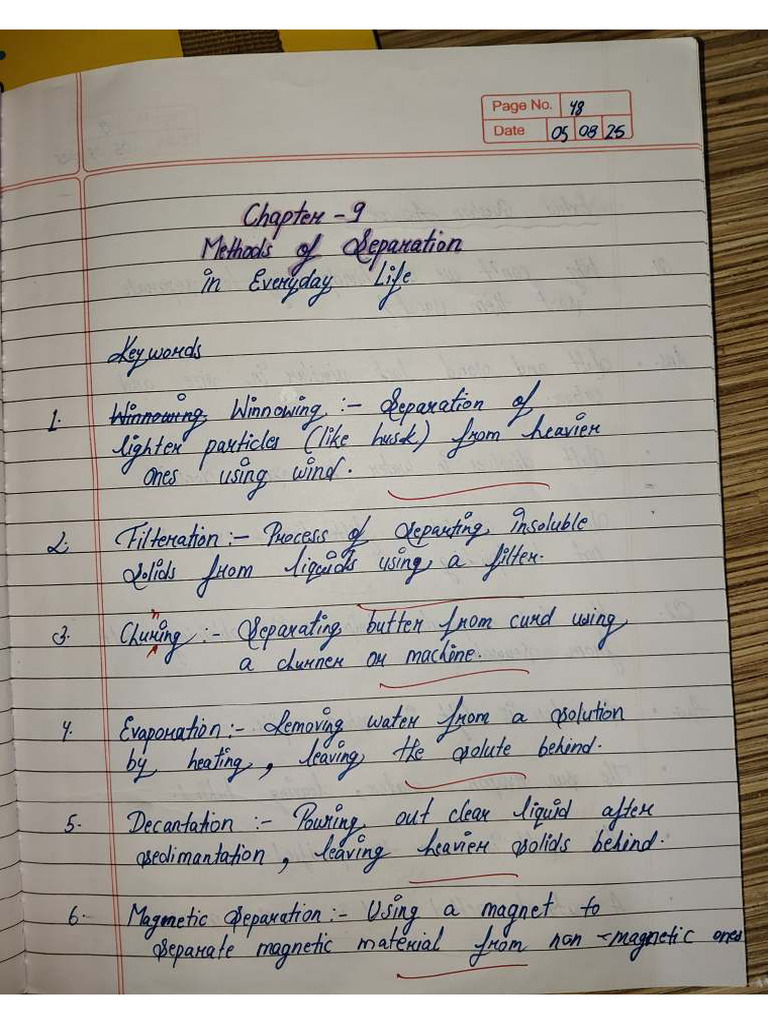 Page No. 48
Date 05 08 25
Chapter - 9
Methods of Separation
in Everyday Life
Keywords
1. Winnowing Winnowing :- Separation of
lighter particles (like husk) from heavier
ones using wind.
2. Filteration :- Process of separting insoluble
solids from liquids using a filter.
3. Churning :- Separating butter from curd using
a churner or machine.
4. Evaporation :- Removing water from a solution
by heating, leaving the solute behind.
5. Decantation :- Pouring out clear liquid after
sedimantation, leaving heavier solids behind.
6. Magnetic Separation :- Using a magnet to
separate magnetic material from non-magnetic ones